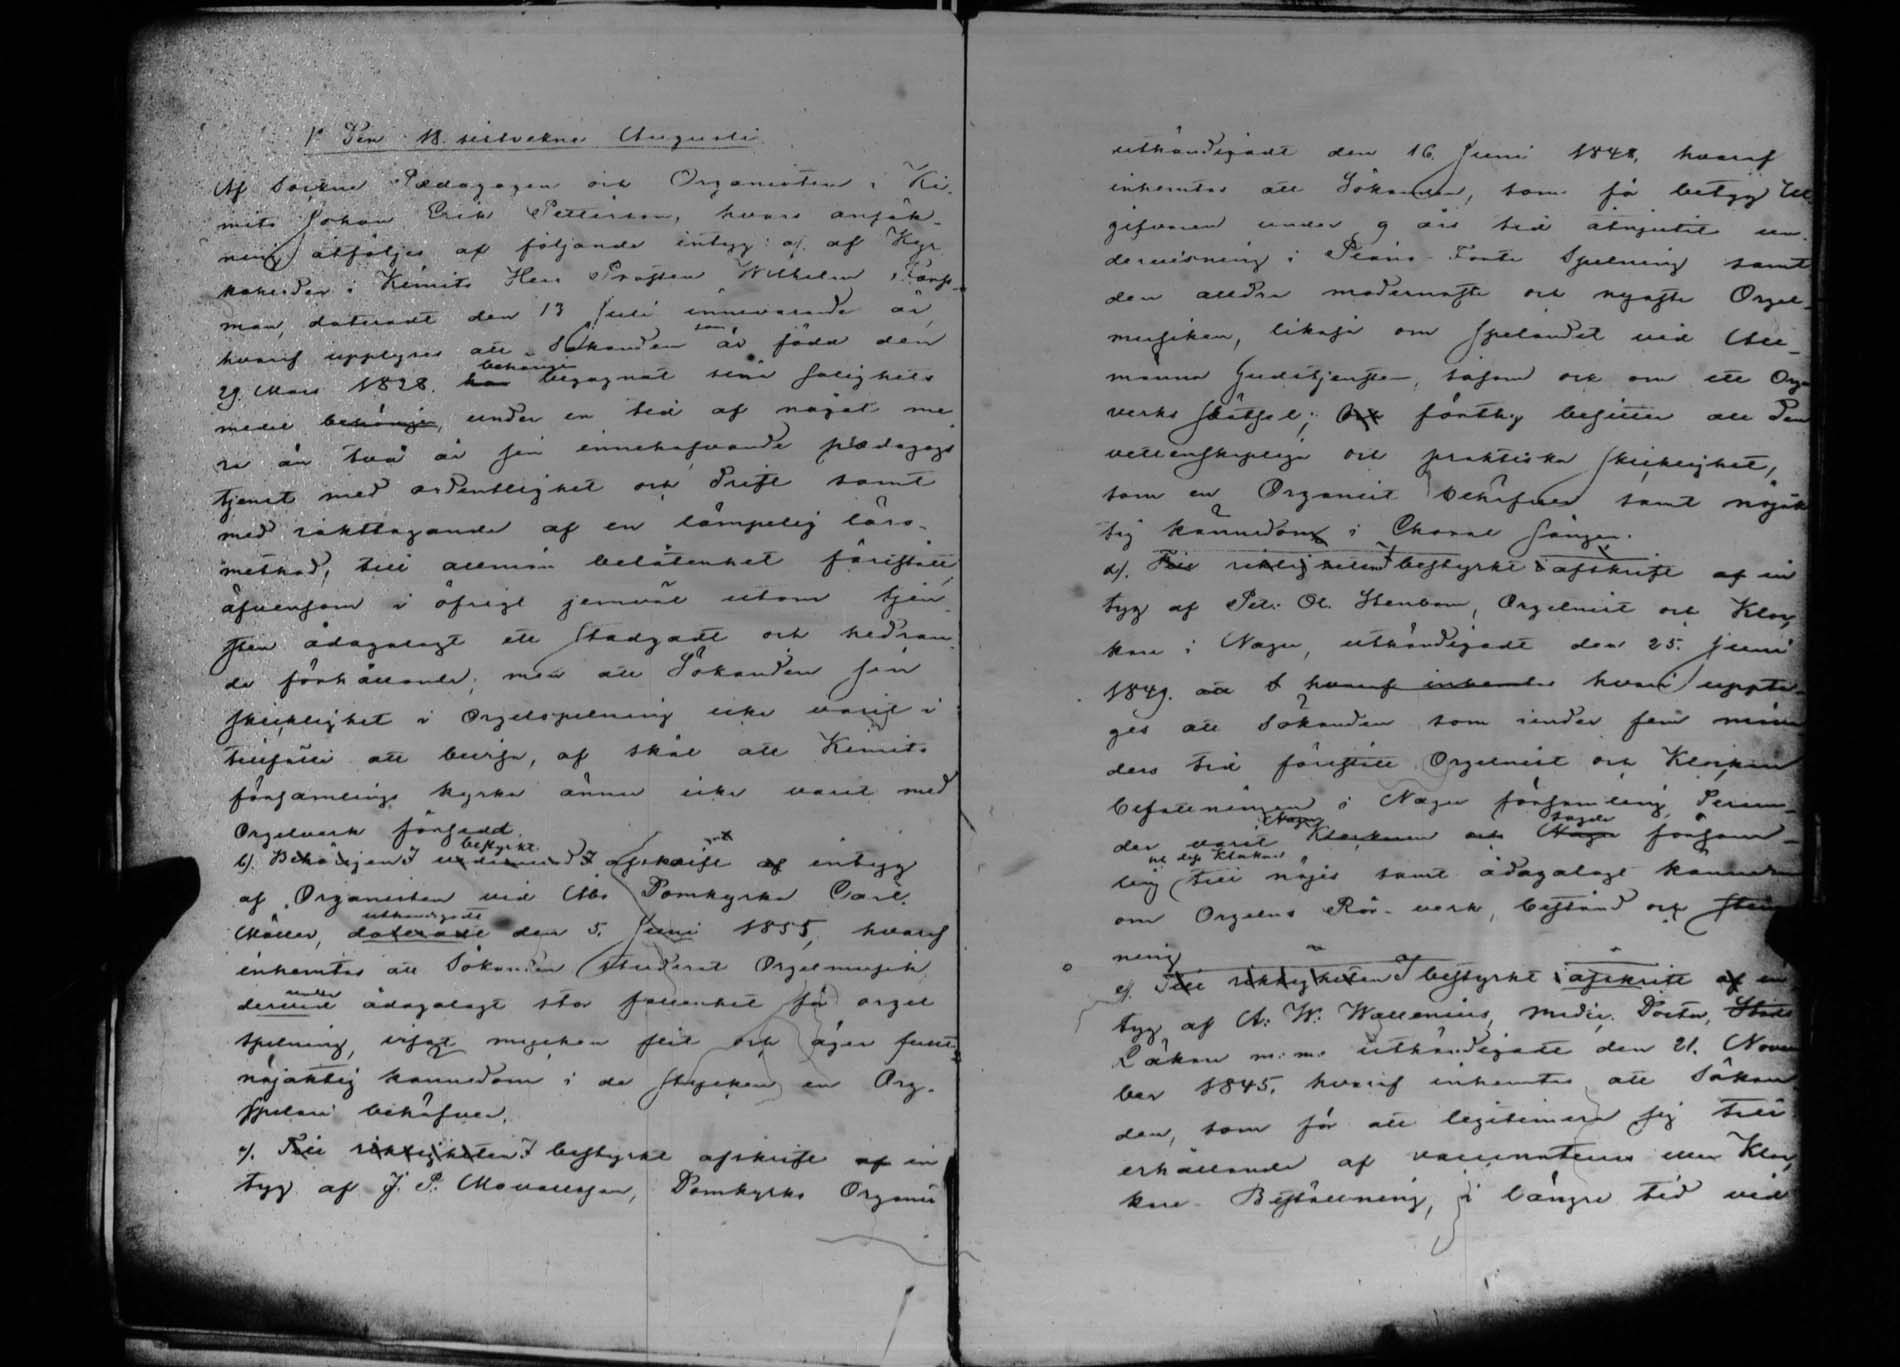 1º Den 18. sistvekne Augusti
Af Sockne Pædagogen och Organisten i Ki-
mito Johan Erik Petterson, hvars ansök-
ning åtföljes af följande intyg: a/. af Kyr
koherden i Kimito Herr Prosten Wilhelm
man, dateradt den 13 Juli innevarande år,
hvaraf upplyses att Sökanden som är född den
29. Mars 1828. har behörigen begagnat sina salighets
medel behörigen, under en tid af något me
ra än två år sin innehafvande pædagogs
tjenst med ordentlighet och drift samt
med iakttagande af en lämpelig läro-
method, till allmän belåtenhet förestått,
äfvensom i öfrigt jemväl utom tjen
sten ådagalagt ett stadgadt och hedran
de förhållande; men att Sökanden sin
skicklighet i Orgelspelning icke varit i
tillfälle att bevisa, af skäl att Kimito
församlings kyrka ännu icke varit med
Orgelverk försedd.
b/. Behörigen bestyrkt afskrift af intyg
af Organisten vid Åbo Domkyrka Carl
Möller, dateradt uthändigadt den 5. Juni 1855, hvaraf
inhemtas att Sökanden studerat Orgelmusik,
dervid under ådagalagt stor fallenhet för orgel
spelning, visat mycken flit och äger full
nöjaktig kännedom i de stycken en Org-
spelare behöfver.
c/. Till riktigheten bestyrkt afskrift af in
tyg af J. P. Domkyrko Organist
uthändigadt den 16. Juni 1848, hvaraf
inhemtas att Sökanden, som för betyg Ut
gifvaren under 9 års tid åtnjutit un-
dervisning i Piano-Forte Spelning samt
den äldre modernaste och nyaste Orgel-
musiken, likaså om spelandet vid All-
männa Gudstjensten, såsom ock om ett Orge
verks skötsel; Och förthy besitter all den
vettenskapliga och praktiska skicklighet,
som en Organist behöfver samt nöjak
tig kännedom i Choral Sången.
d/. Till riktigheten bestyrkt afskrift af in
tyg af Pet: Ol. Stenbom, Orgelnist och Kloc
kare i Nagu, uthändigadt den 25. Juni
1849. att hvaraf inhemtas hvari uppta-
ges att Sökanden som under fem måna
ders tid förestått Orgelnist och Klockare
befattningen i Nagu församling,
der varit Klockaren och Nagu sagde försam-
ling till nöjes samt ådagalagt kännedom
om Orgelns Rör-verk, bestånd och stäm
ning
e/. Till riktigheten bestyrkt afskrift af in
tyg af A: W: Wallenius, Medic. Doctor, Stads
Läkare m: m: uthändigadt den 21. Novem
ber 1845, hvaraf inhemtas att Sökan
den, som för att legitimera sig till
erhållande af vaccinateurs eller Kloc
kare Beställning, i längre tid vid